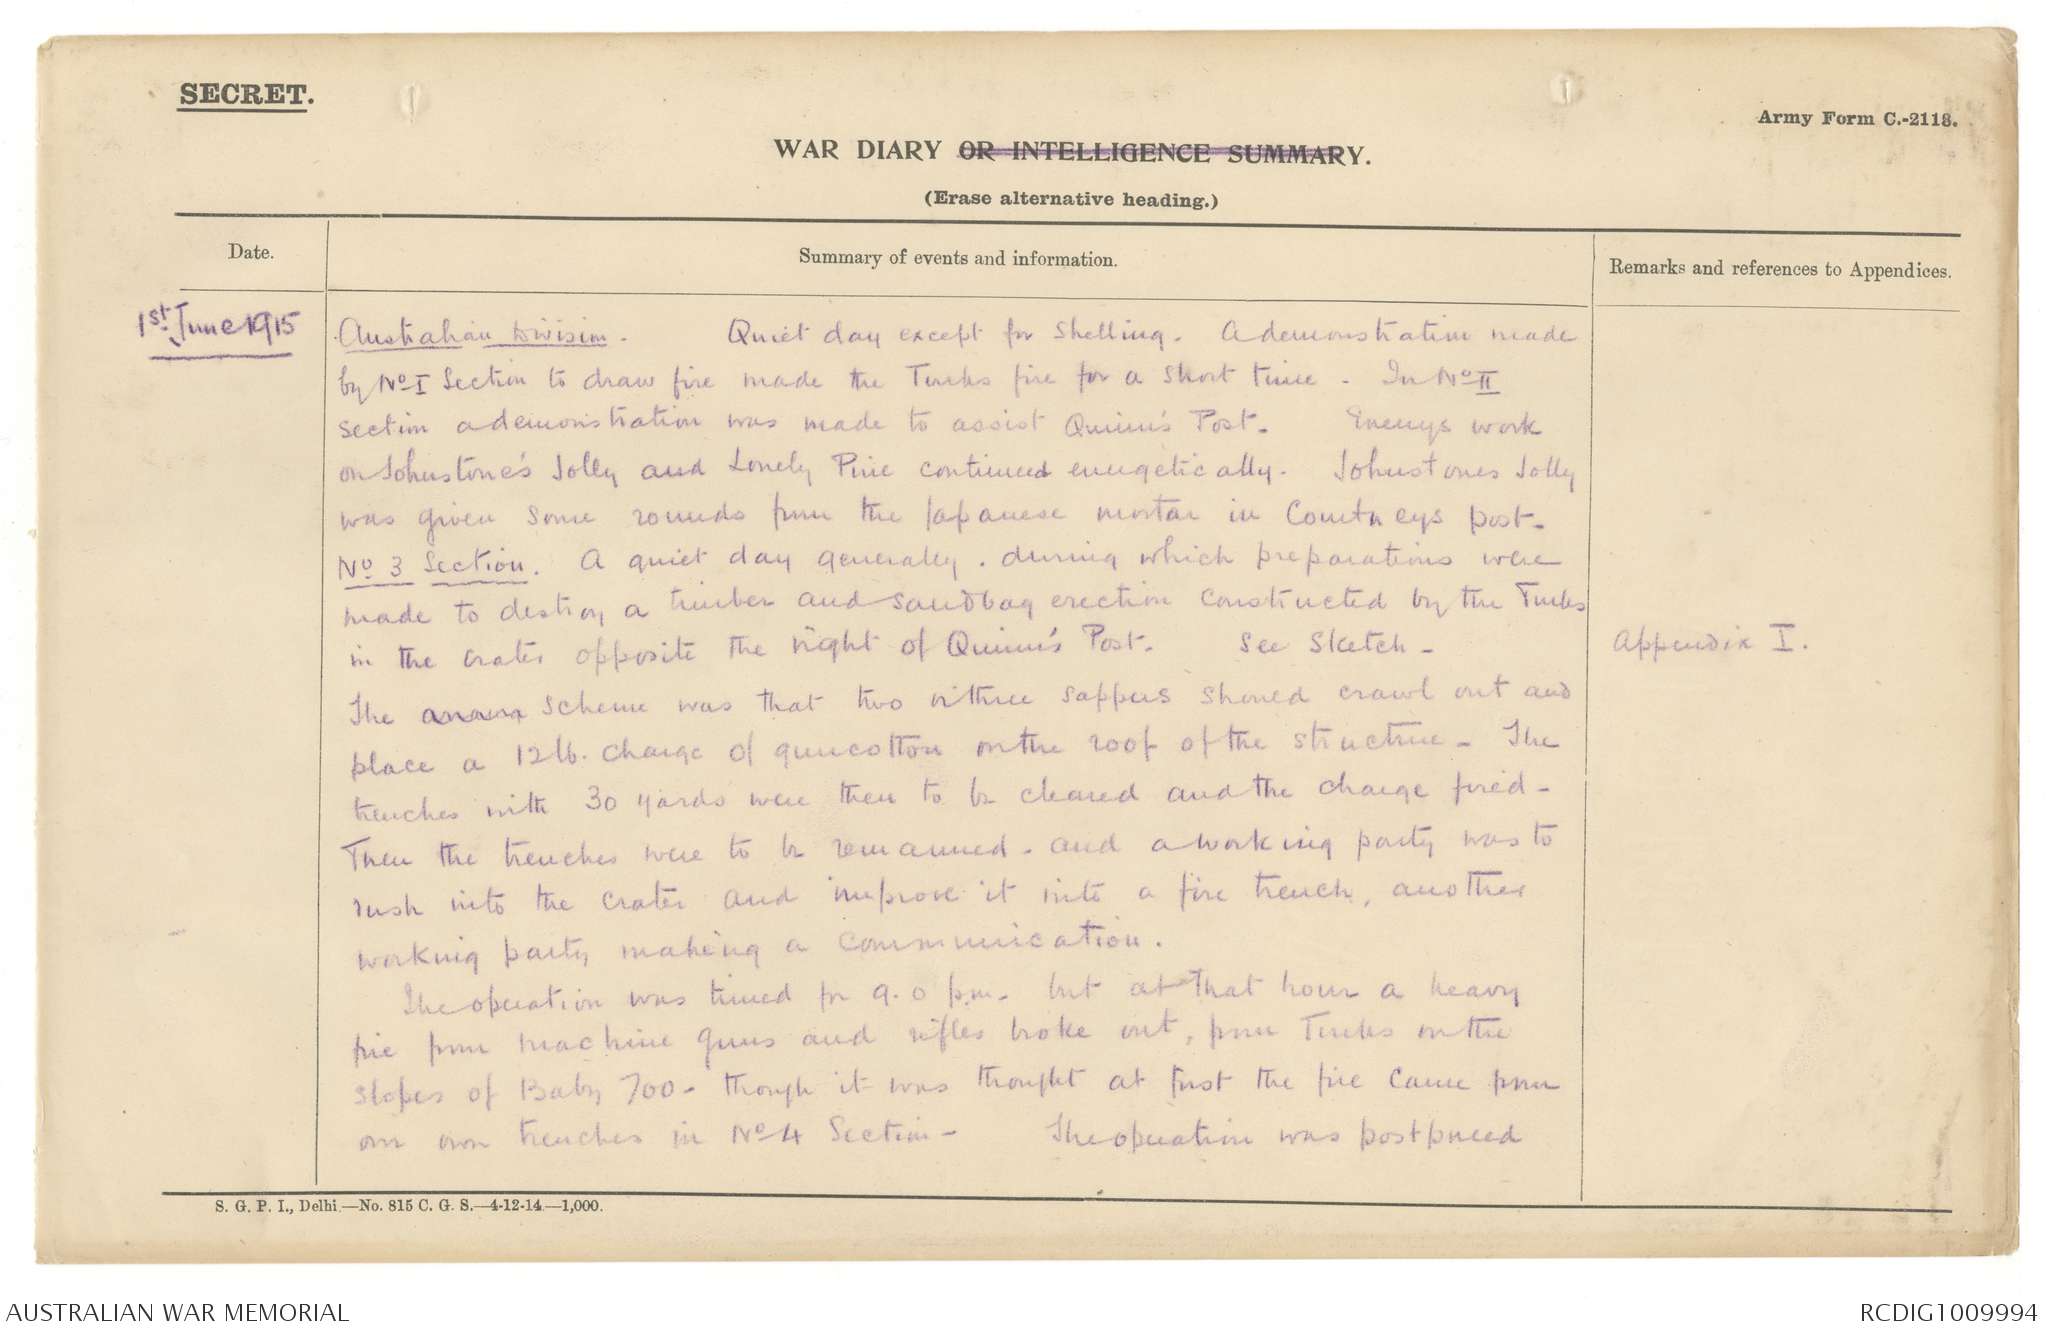 SECRET.
Army Form C.-2118.
WAR DIARY OR INTELLIGENCE SUMMARY.
(Erase alternative heading.)
Date.
Summary of events and information.
Remarks and references to Appendices.
1st June 1915
Australian Division. Quiet day except for shelling. A demonstration made
by No I Section to draw fire made the Turks fire for a short time. In No II
section a demonstration was made to assist Quinn's Post. Enemys work
on Johnstone's Jolly and Lonely Pine continued energetically. Johnstones Jolly
was given some rounds from the Japanese mortar in Courtneys post.
No 3 Section. A quiet day generally. during which preparations were
made to destroy a timber and sandbag erection constructed by the Turks
in the crater opposite the right of Quinn's Post. See Sketch -
Appendix I.
The scheme was that two or three sappers should crawl out and
place a 12 lb. charge of guncotton on the roof of the structure - The
trenches with 30 yards were then to be cleared and the charge fired -
Then the trenches were to be remanned - and a working party was to
rush into the crater and improve it into a fire trench, another
working party making a communication.
The operation was timed for 9.0 p.m. but at that hour a heavy
fire from machine guns and rifles broke out, from Turks on the
slopes of Baby 700 - though it was thought at first the fire came from
our own trenches in No 4 Section - The operation was postponed
S. G. P. I., Delhi.—No. 815 C. G. S.—4-12-14—1,000.
AUSTRALIAN WAR MEMORIAL
RCDIG1009994